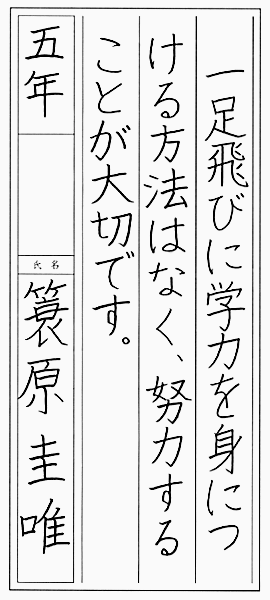 一足飛びに学力を身につ
ける方法はなく、努力する
ことが大切です。
五年
氏名
簑原圭唯